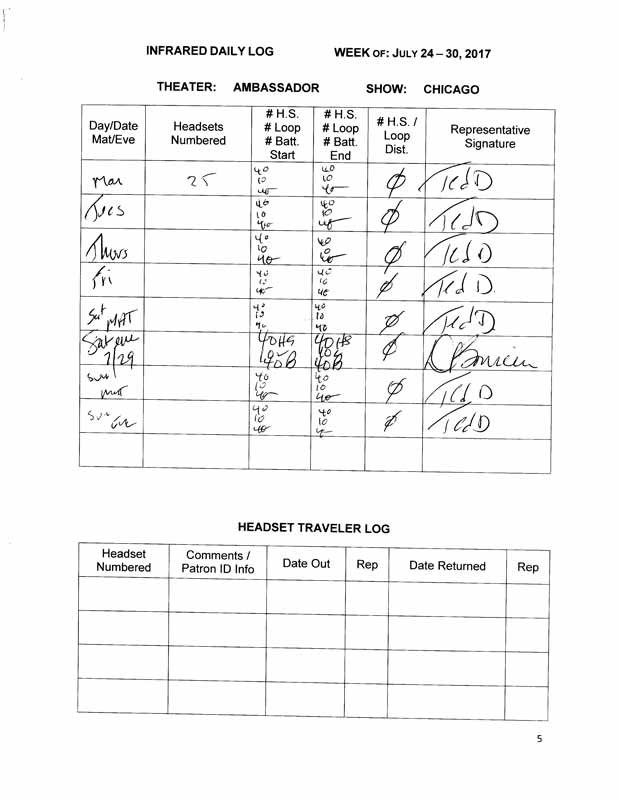 INFRARED DAILY LOG WEEK OF: JULY 24 – 30, 2017
THEATER: AMBASSADOR SHOW: CHICAGO
Day/Date Mat/Eve
Headsets Numbered
# H.S. # Loop # Batt. Start
# H.S. # Loop # Batt. End
# H.S. / Loop Dist.
Representative Signature
25 40 10 40 40 10 40 Ø Ted D
Tues 40 10 40 40 10 40 Ø Ted D
Thurs 40 10 40 40 10 40 Ø Ted D
Fri 40 10 40 40 10 40 Ø Ted D.
Sat MAT 40 10 40 40 10 40 Ø Ted D
Sat eve 7/29 40HS 40B 40HS 40B Ø
Sun Mat 40 10 40 40 10 40 Ø Ted D
Sun Eve 40 10 40 40 10 Ø Ted D
HEADSET TRAVELER LOG
Headset Numbered
Comments / Patron ID Info
Date Out
Rep
Date Returned
Rep
5